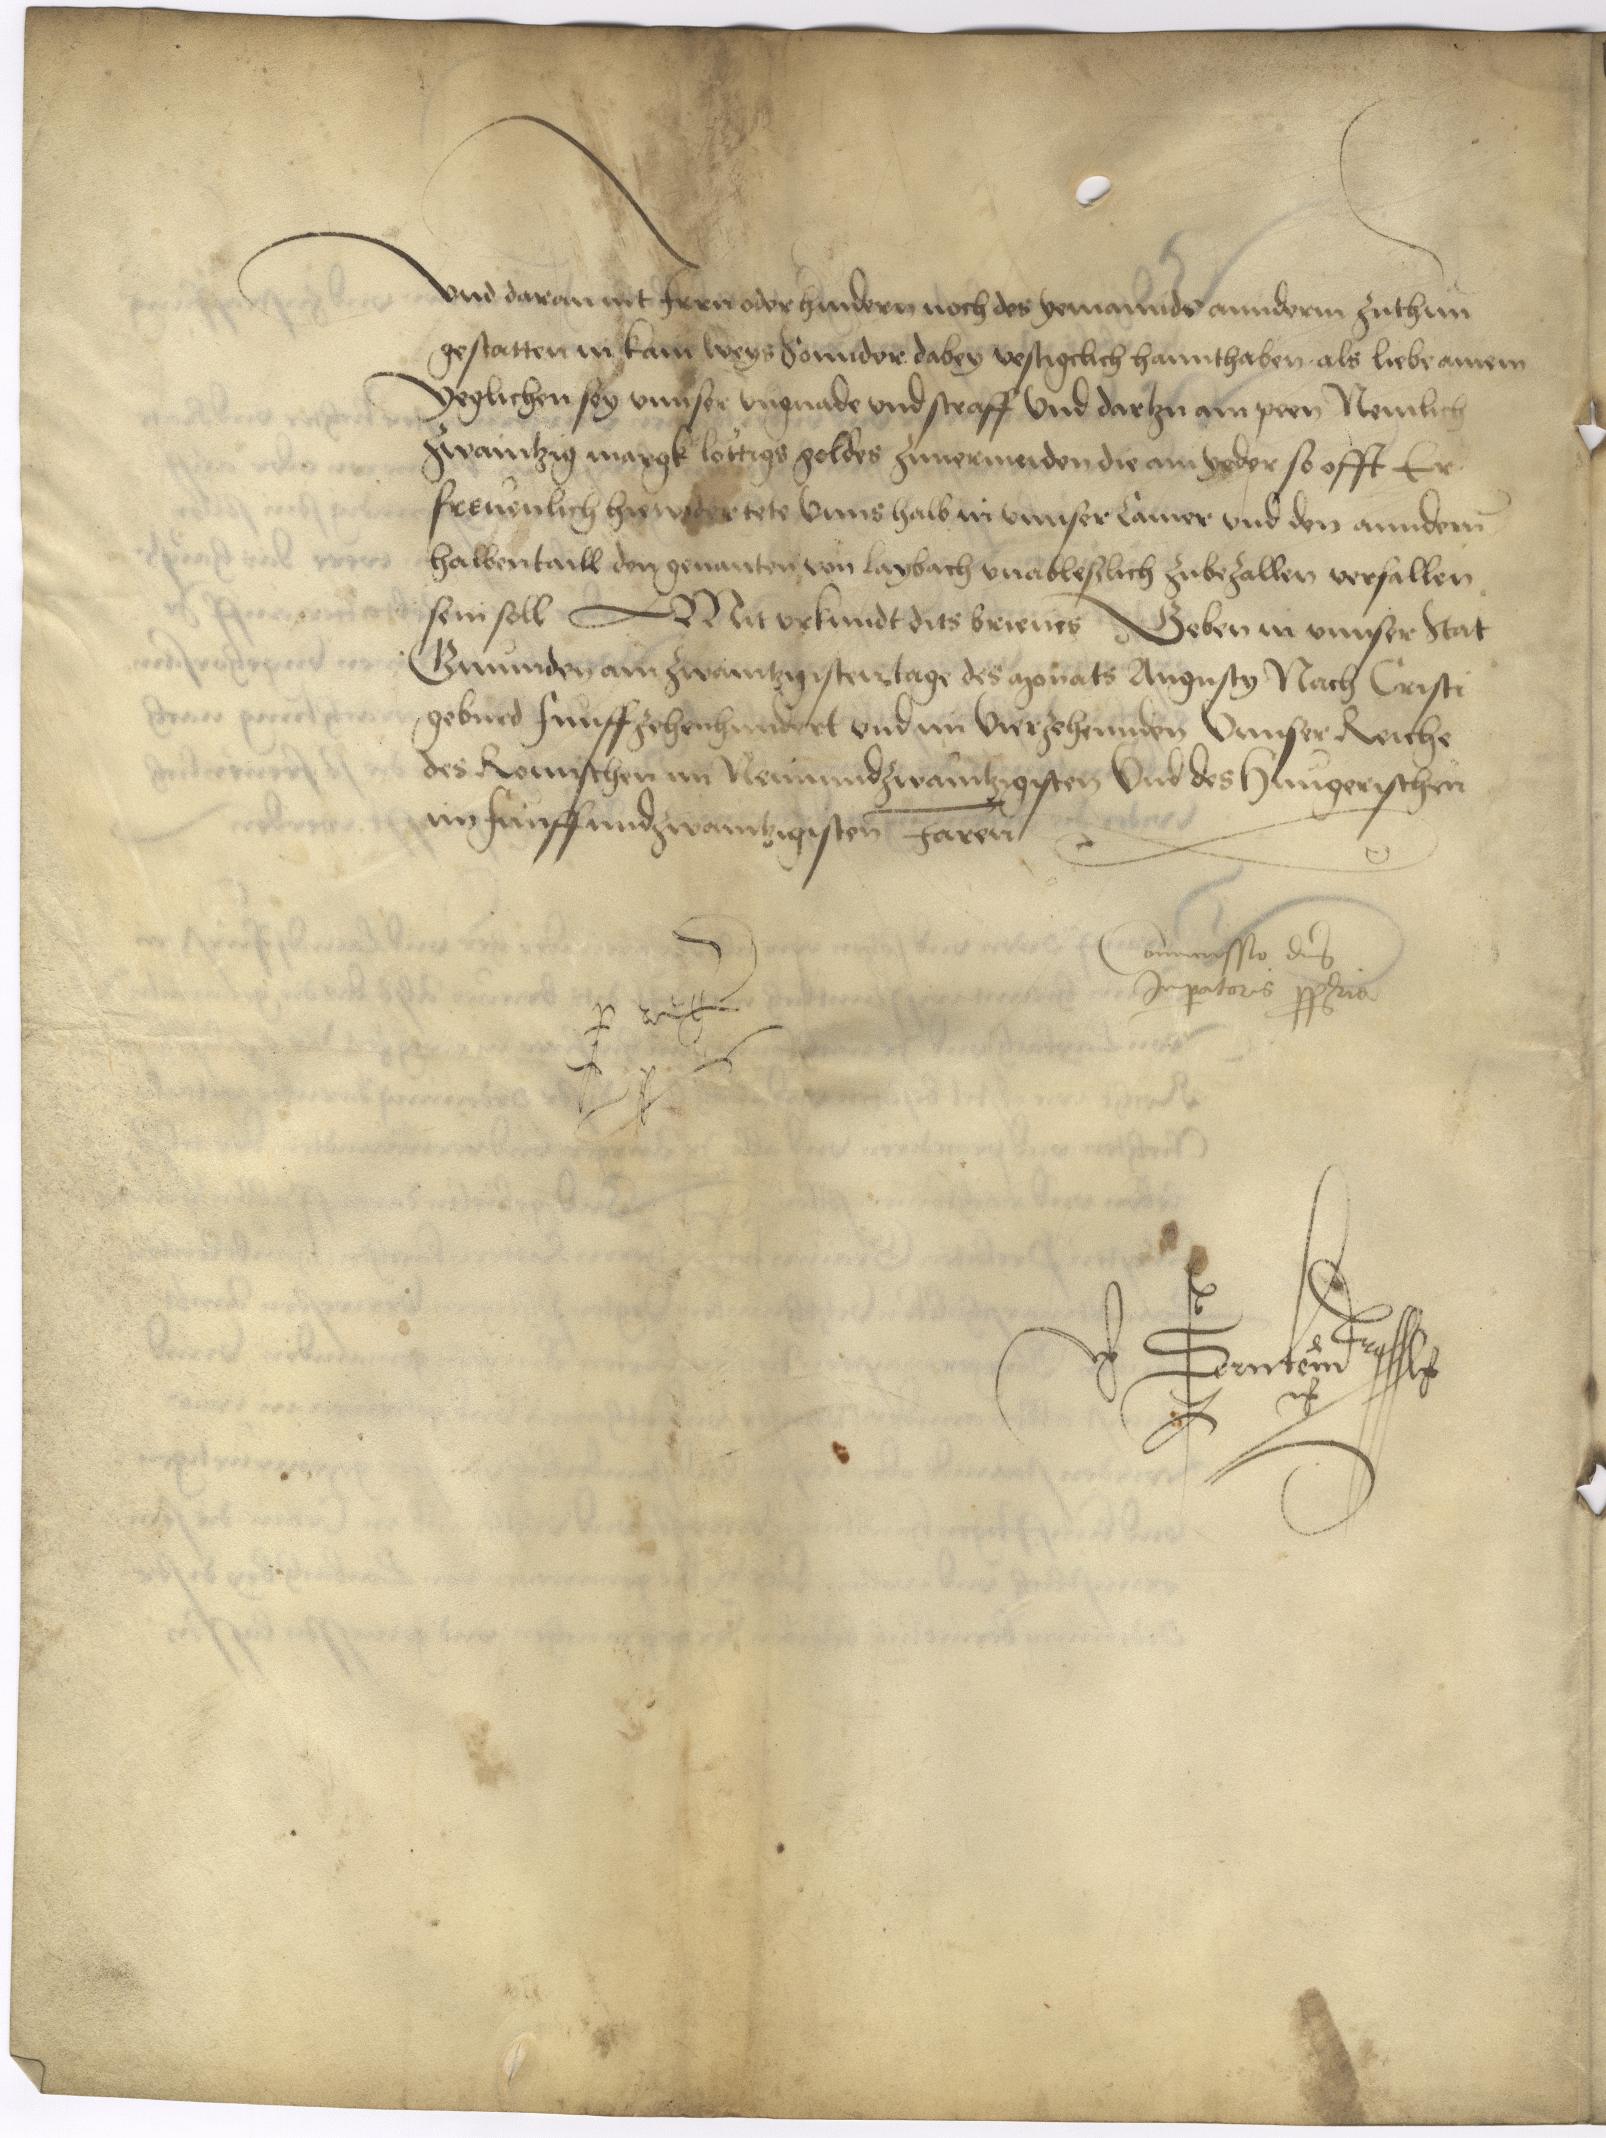 vnd daran nit Irren oder hindern noch des yemannds annderm zuthun
gestatten in kain weys Sonnder dabey vestigclich hannthaben als liebe ainem
yeglichen sey vnnser vngnade vnd straff Vnd dartzu ain peen Nemlich
Zwaintzig margk lottigs goldes zuuermeiden die ain yeder so offt Er
freuenlich hiewider tete Vnns halb in vnnser Camer vnd den anndern
halben taill den genanten von Laybach vnableslich zubezallen verfallen
sein soll Mit vrkundt dits brieues Geben in vnnser Stat
Gmunden am zwaintzigisten tage des monats Augusty Nach Cristi
geburd funffzehenhundert vnd im Vierzehennden Vnnser Reiche
des Romischen im Newnundzwaintzigisten Vnd des Hungerischen
im funffundzwaintzigisten Jaren
Commissio dni
Inpatoris ppria
p
Serntein